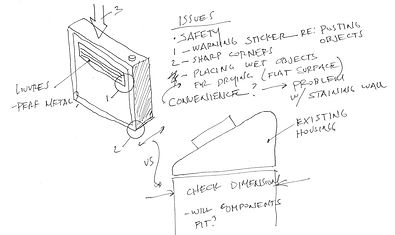 3
ISSUES
• SAFETY
1 - WARNING STICKER RE: PUSTING OBJECTS
2 - SHARP CORNERS
3 - PLACING WET OBJECTS
FOR DRYING (FLAT SURFACE)
CONVENIENCE? → PROBLEM
W/ STAINING WALL
LOUVRES
- PERF METAL
1
2
VS
EXISTING
HOUSING
CHECK DIMENSIONS
- WILL COMPONENTS
FIT?